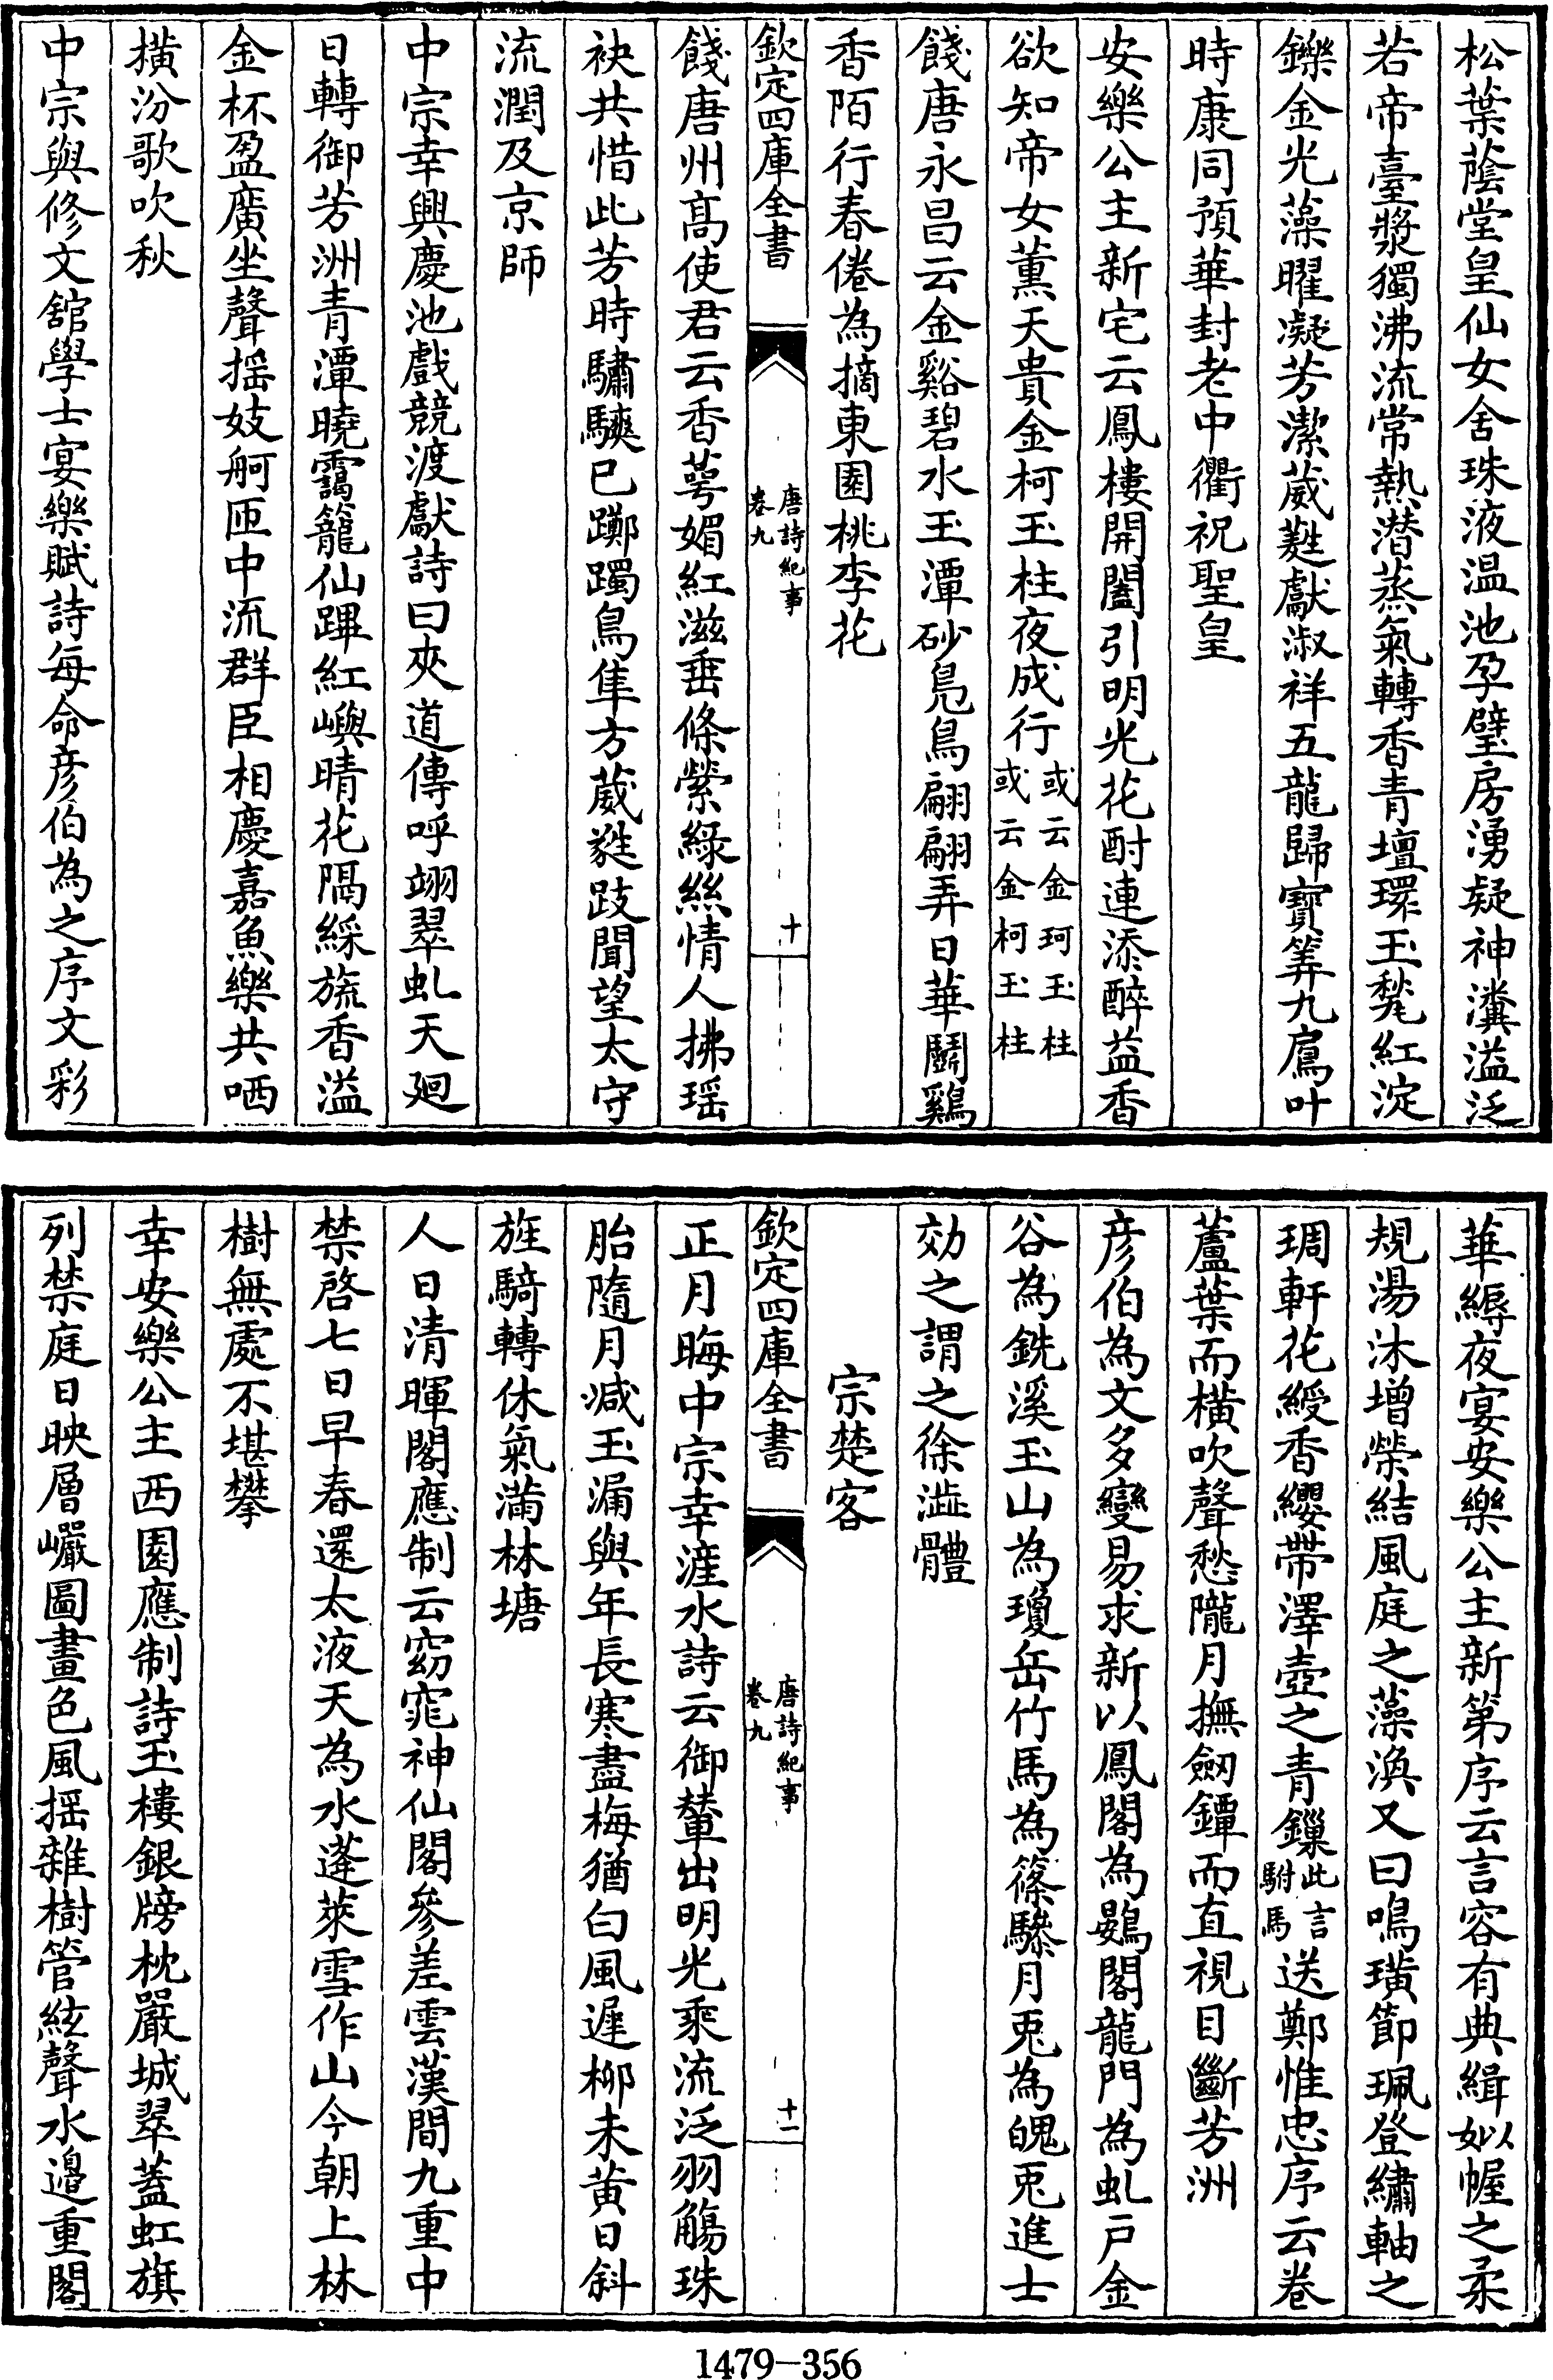 松葉蔭堂皇仙女舍珠液温池孕璧房湧疑神瀵溢泛
若帝臺漿獨沸流常熱潜蒸氣轉香青壇環玉甃紅淀
鑠金光藻曜凝芳潔葳蕤獻淑祥五龍歸寶筭九鳸叶
時康同預華封老中衢祝聖皇
安樂公主新宅云鳳樓開闔引明光花酎連添醉益香
欲知帝女薰天貴金柯玉柱夜成行或云金珂玉柱
或云金柯玉柱
餞唐永昌云金谿碧水玉潭砂鳧鳥翩翩弄日華鬭鷄
香陌行春倦為摘東園桃李花
欽定四庫全書
唐詩紀事
卷九
十
餞唐州髙使君云香萼媚紅滋垂條縈緑絲情人拂瑶
袂共惜此芳時驌驦已躑躅鳥隼方葳蕤跂聞望太守
流潤及京師
中宗幸興慶池戲競渡獻詩曰夾道傳呼翊翠虬天廻
日轉御芳洲青潭曉靄籠仙蹕紅嶼晴花隔綵旒香溢
金杯盈廣坐聲摇妓舸匝中流群臣相慶嘉魚樂共哂
横汾歌吹秋
中宗與修文舘學士宴樂賦詩每命彦伯為之序文彩
華縟夜宴安樂公主新第序云言容有典緝姒幄之柔
規湯沐增榮結風庭之藻渙又曰鳴璜節珮登繡軸之
琱軒花綬香纓帶澤壺之青鏁此言
駙馬送鄭惟忠序云卷
蘆葉而横吹聲愁隴月撫劒鐔而直視目斷芳洲
彦伯為文多變易求新以鳳閣為鷃閣龍門為虬戸金
谷為銑溪玉山為瓊岳竹馬為篠驂月兎為魄兎進士
効之謂之徐澁體
宗楚客
欽定四庫全書
唐詩紀事
卷九
十一
正月晦中宗幸滻水詩云御輦出明光乘流泛羽觴珠
胎隨月减玉漏與年長寒盡梅猶白風遲柳未黄日斜
旌騎轉休氣滿林塘
人日清暉閣應制云窈窕神仙閣參差雲漢間九重中
禁啓七日早春還太液天為水蓬萊雪作山今朝上林
樹無處不堪攀
幸安樂公主西園應制詩玉樓銀牓枕嚴城翠蓋虹旗
列禁庭日映層巖圖畫色風摇雜樹管絃聲水邉重閣
1479-356